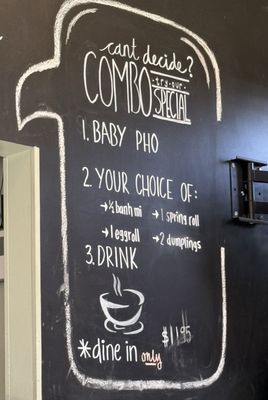 can't decide?
try our
COMBO SPECIAL
1. BABY PHO
2. YOUR CHOICE OF:
→ ½ banh mi → 1 spring roll
→ 1 eggroll → 2 dumplings
3. DRINK
$11.95
*dine in only